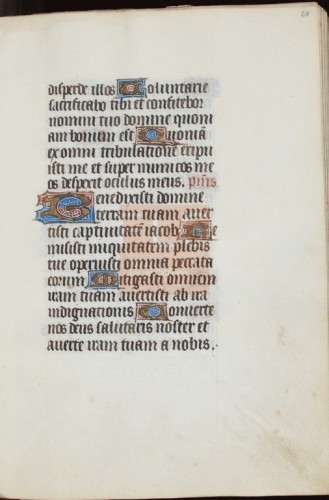 disperde illos Voluntarie
sacrificabo tibi et confitebor
nomini tuo domine quoni
am bonum est Quoniã
ex omni tribulatione eripu
isti me et super inimicos me
os despexit oculus meus. p̃ms
Benedixisti domine
terram tuam aver
tisti captivitatẽ iacob Re
misisti iniquitatem plebis
tue operuisti omnia peccata
eorum Mitigasti omnem
iram tuam avertisti ab ira
indignationis Converte
nos deus salutaris noster et
averte iram tuam a nobis.